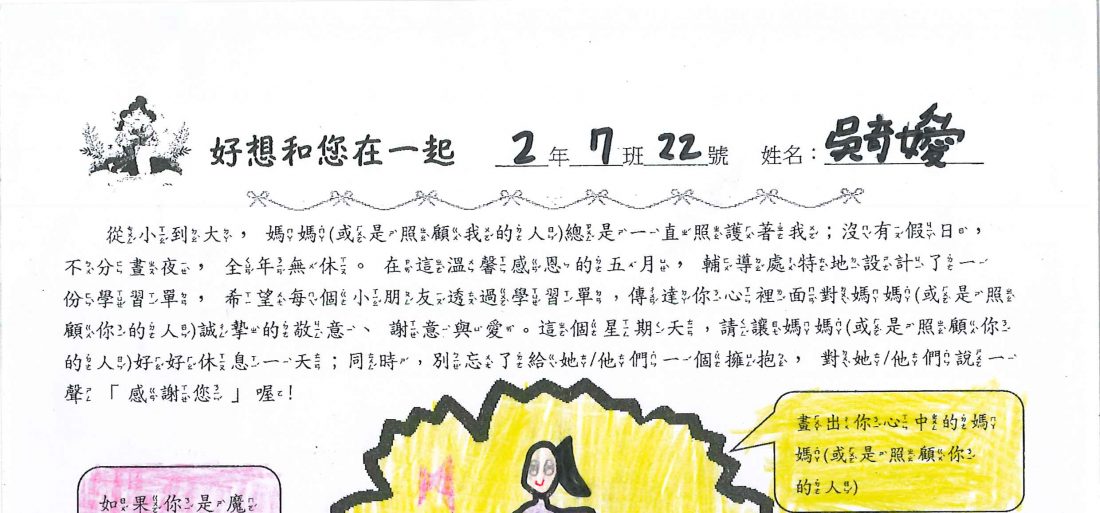 好想和您在一起 2年7班22號 姓名：吳奇嬡
從小到大，媽媽(或是照顧我的人)總是一直照護著我；沒有假日，
不分晝夜，全年無休。在這溫馨感恩的五月，輔導處特地設計了一
份學習單，希望每個小朋友透過學習單，傳達你心裡面對媽媽(或是照
顧你的人)誠摯的敬意、謝意與愛。這個星期天，請讓媽媽(或是照顧你
的人)好好休息一天；同時，別忘了給她/他們一個擁抱，對她/他們說一
聲「感謝您」喔!
畫出你心中的媽
媽(或是照顧你
的人)
如果你是魔